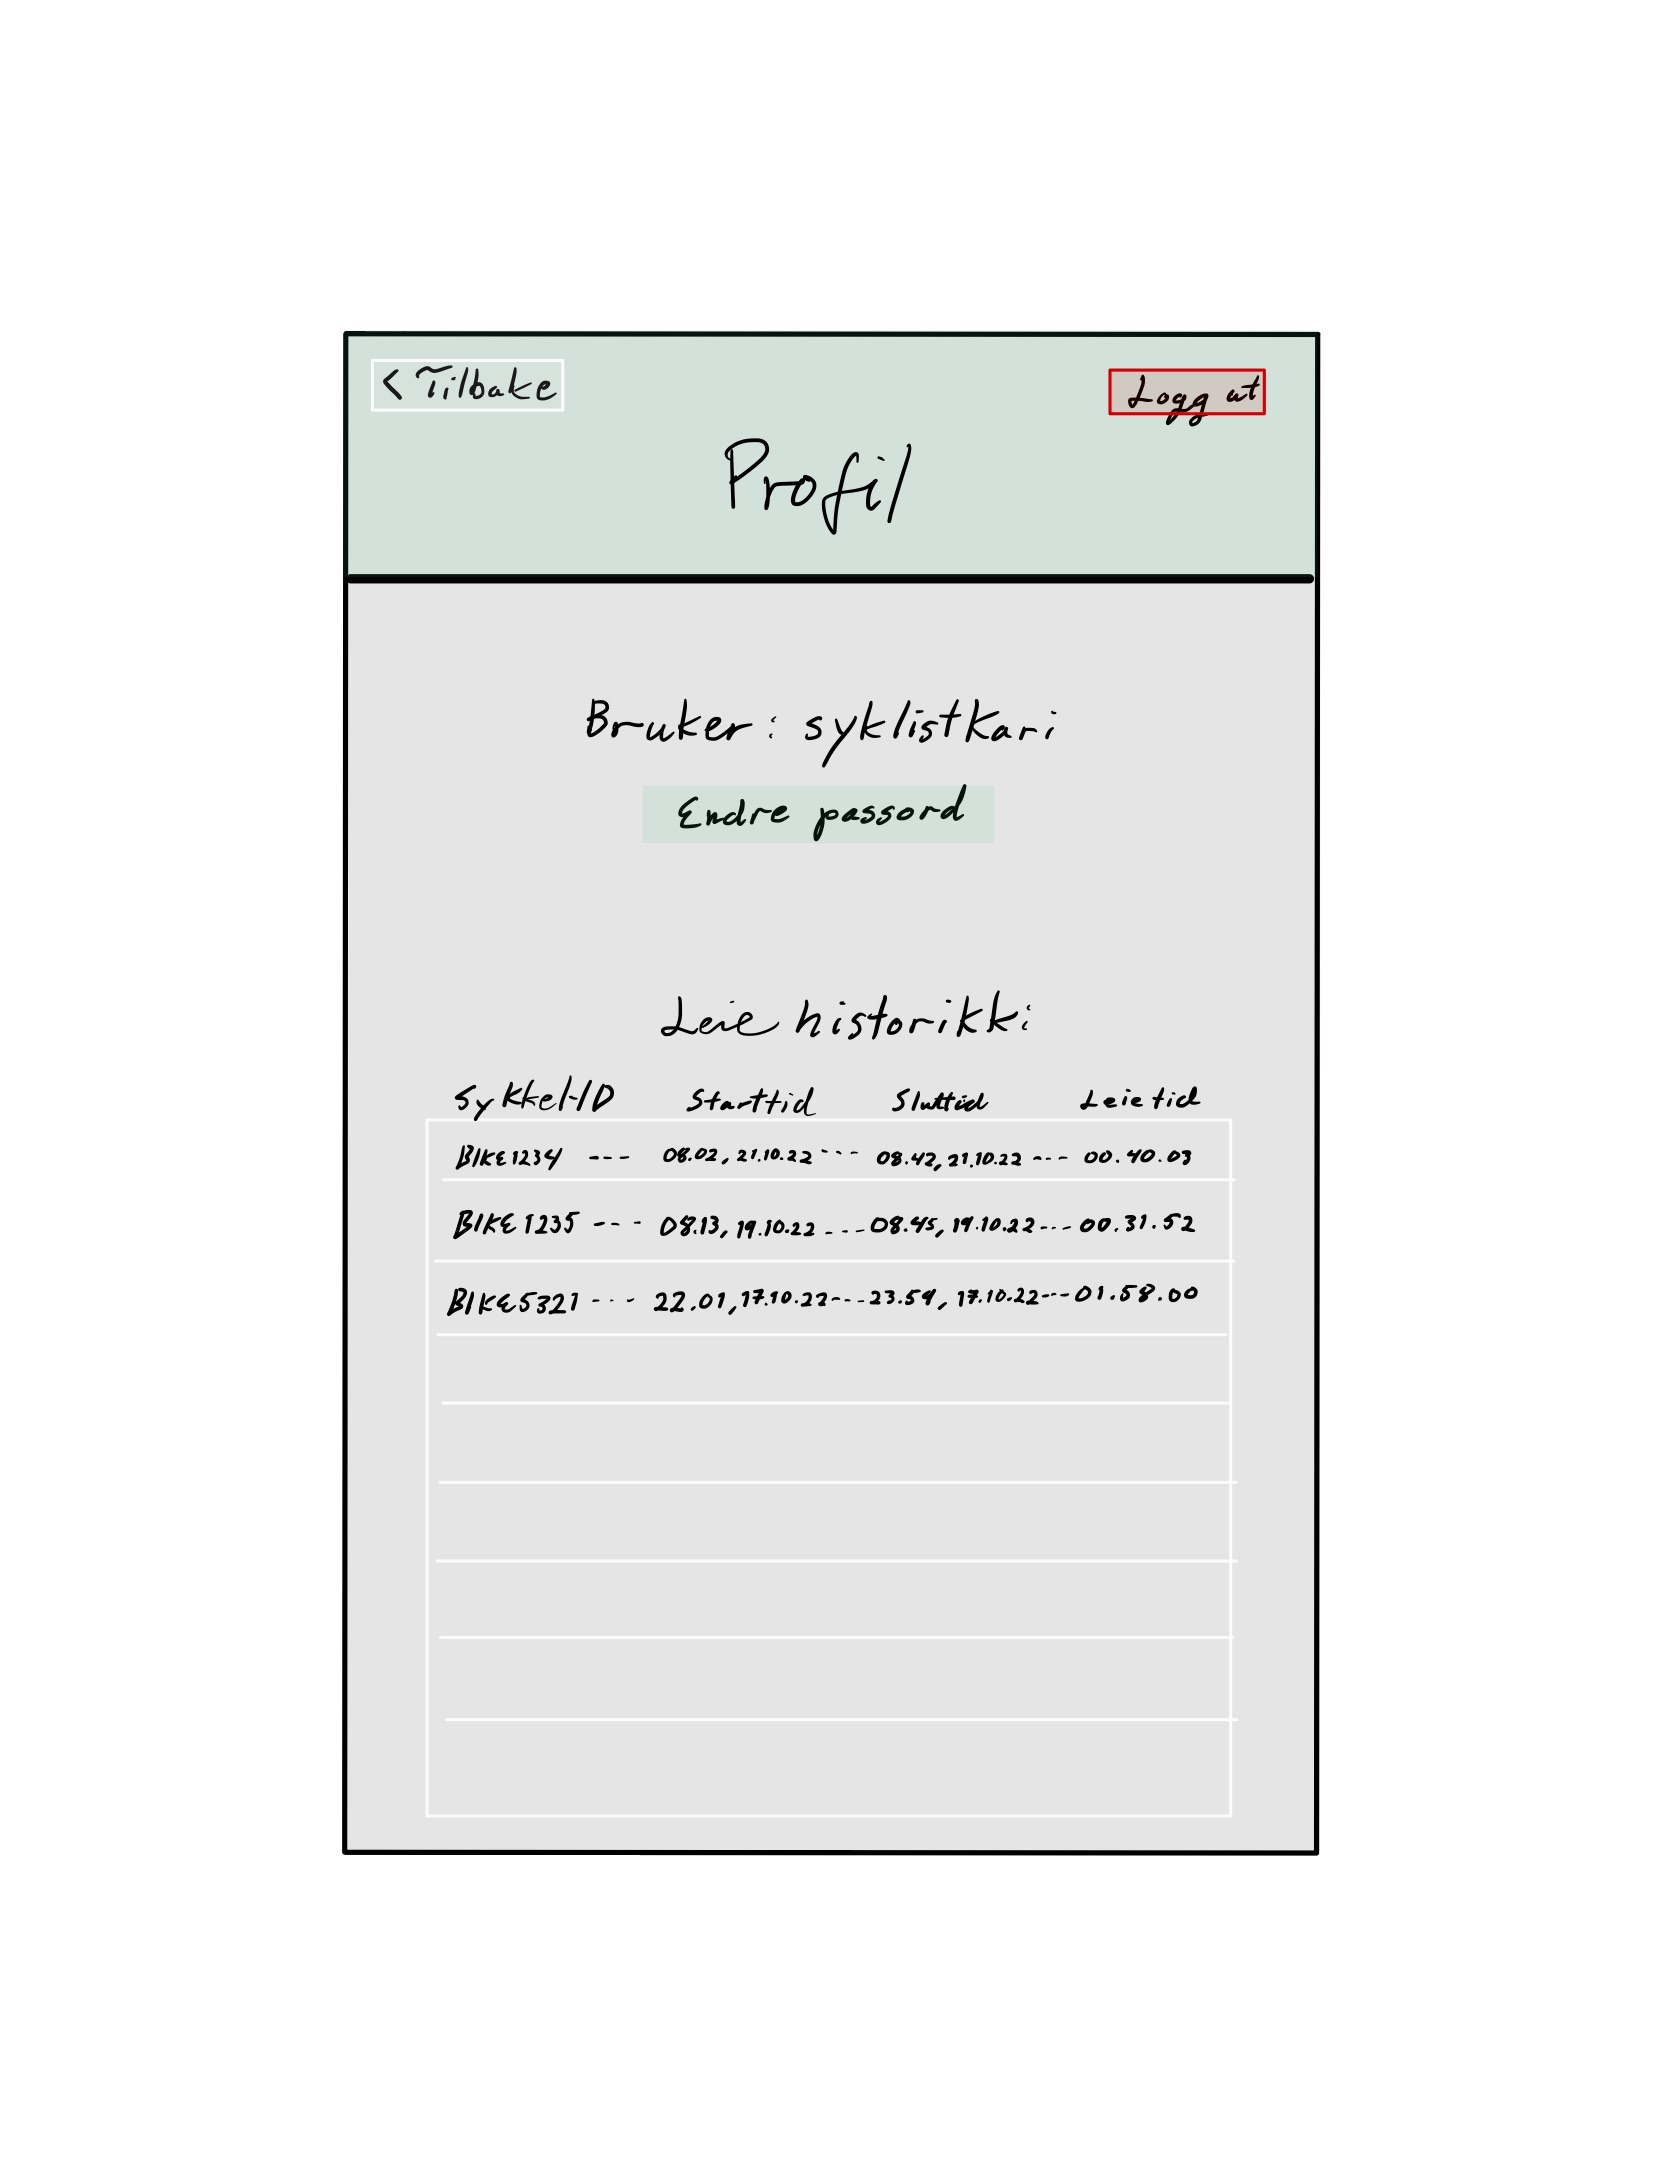 < Tilbake
Logg ut
Profil
Bruker: syklistkari
Endre passord
Leie historikk:
Sykkel-ID Starttid Sluttid Leietid
BIKE1234 --- 08.02, 21.10.22 --- 08.42, 21.10.22 --- 00.40.03
BIKE1235 --- 08.13, 19.10.22 --- 08.45, 19.10.22 --- 00.31.52
BIKE5321 --- 22.01, 17.10.22 --- 23.59, 17.10.22 --- 01.58.00